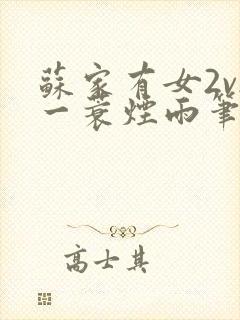 蘇家有女2v
一蓑煙雨筆
高士其